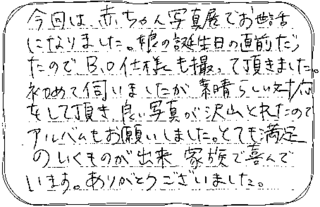 今回は、赤ちゃん写真展でお世話
になりました。娘の誕生日の直前だっ
たのでB.D仕様も撮って頂きました。
初めて伺いましたが素晴らしい対応
をして頂き、良い写真が沢山とれたので
アルバムもお願いしました。とても満足
のいくものが出来、家族で喜んで
います。ありがとうございました。